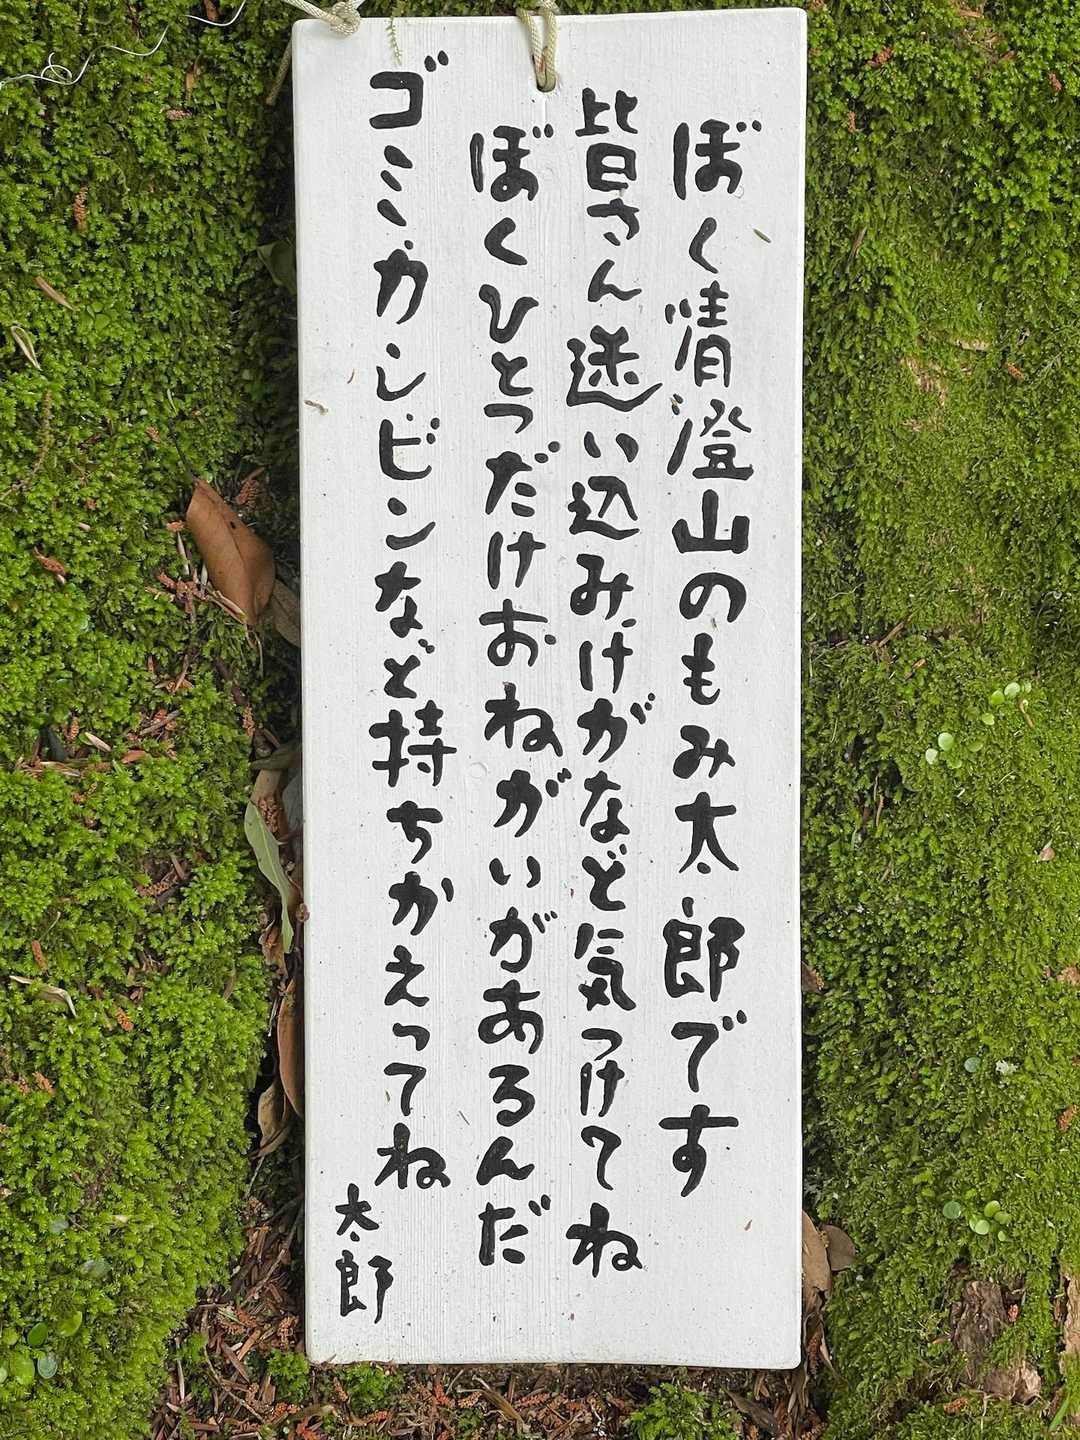 ぼく情澄山のもみ太郎です
皆さん迷い込みけがなど気つけてね
ぼくひとつだけおねがいがあるんだ
ゴミカンビンなど持ちかえってね
太郎